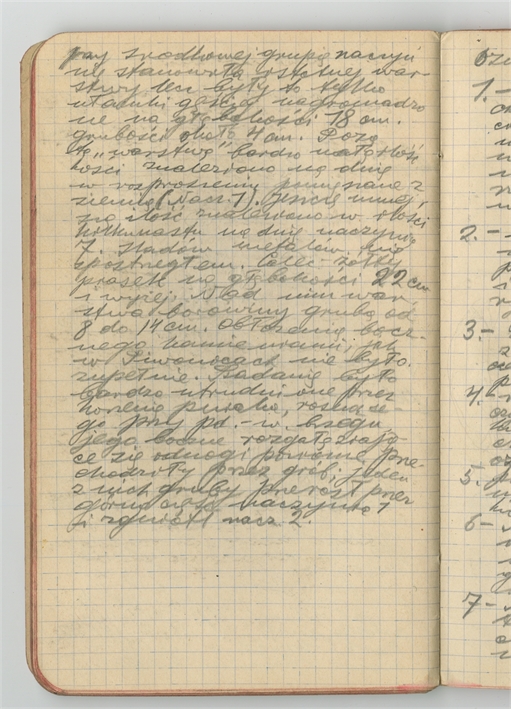 przy środkowej grupie naczyń
nie stanowiła istotnej war-
stwy lecz były to tylko
ułamki gęściej nagromadzo
ne na głębokości 18 cm.
grubości około 4 cm. Poza
tą „warstwą" bardzo małą ilość
kości znaleziono na dnie
w rozproszeniu pomięszane z
ziemią (Nacz. 1). Jeszcze mniej,
szą ilość znaleziono w ilości
kilkunastu na dnie naczynia
7. śladów metalów nie
spostrzegłem. Calec żółty
piasek na głębokości 22 cm
i wyżej. Nad nim war,
stwa borowiny grubą od
8 do 14 cm. Obłożenia bocz-
nego kamieniami, jak
w Piwonicach nie było.
zupełnie. Badanie było
bardzo utrudnione przez
korzenie pniaka, rosnące-
go przy pd.-w. brzegu
jego boczne rozgałęziają-
ce się odnogi poziome prze-
chodziły przez grób; jeden
z nich gruby przerósł przez
górną część naczynia 1
i zgniótł nacz 2.
1.-
2.-
3.-
4.-
5.
6-
7-